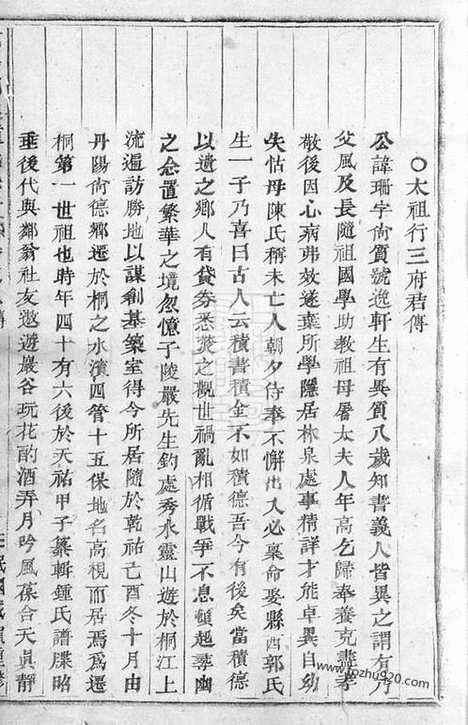 ○太祖行三府君傳
公諱珊字尙質號逸軒生有異質八歲知書義人皆異之謂有乃
父風及長隨祖國學助教祖母屠太夫人年高乞歸奉養克盡孝
敬後因心病弗效遂棄所學隱居林泉處事精詳才能卓異自幼
失怙母陳氏稱未亡人朝夕侍奉不懈出入必稟命娶縣西郭氏
生一子乃喜曰古人云積書積金不如積德吾今有後矣當積德
以遺之鄉人有貸券悉焚之觀世禍亂相循戰爭不息頓起尋幽
之念置繁華之境忽憶子陵嚴先生釣處秀水靈山遊於桐江上
流遍訪勝地以謀創基築室得今所居隨於乾祐己酉冬十月由
丹陽尙德鄉遷於桐之水濱四管十五保地名高梘而居焉爲遷
桐第一世祖也時年四十有六後於天祐甲子纂輯鍾氏譜牒昭
垂後代與鄰翁社友遨遊巖谷玩花酌酒弄月吟風葆合天眞靜
www.yozhu920.com